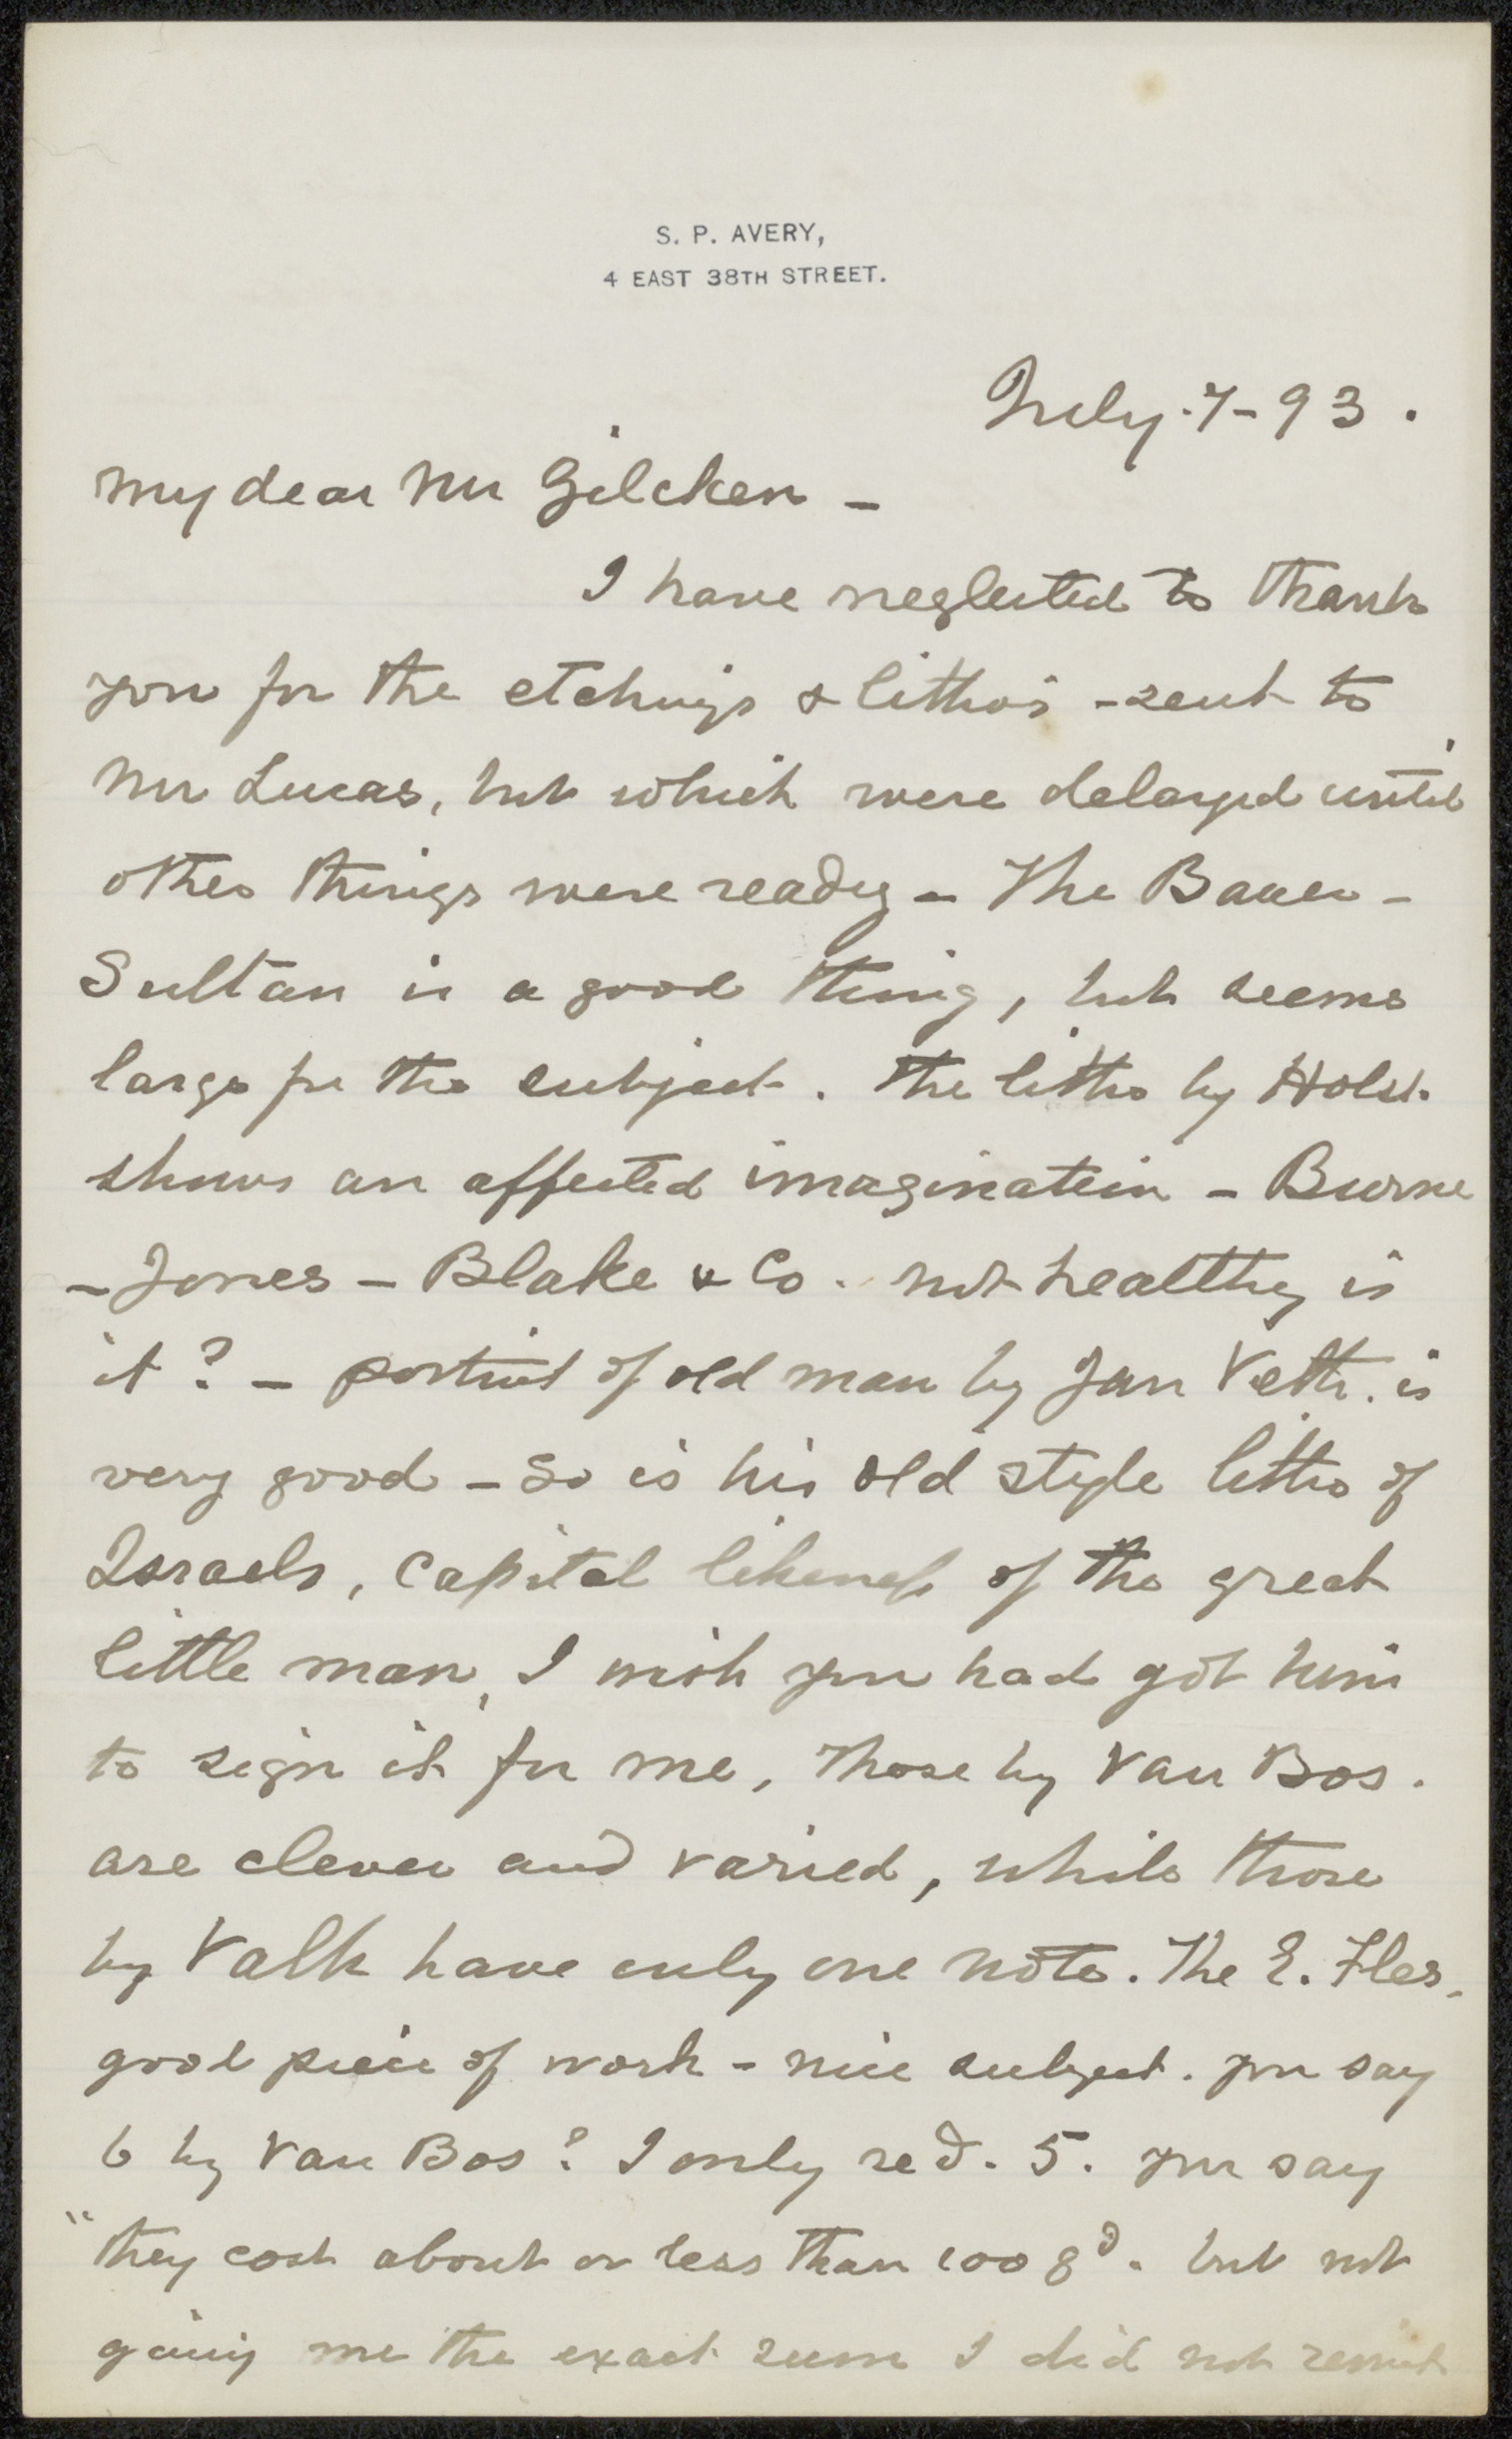 S. P. AVERY,
4 EAST 38TH STREET.
July. 7 - 93.
My dear Mr Zilcken -
I have neglected to thank
you for the etchings & litho's - sent to
Mr Lucas, but which were delayed until
other things were ready - The Bauer -
Sultan is a good thing, but seems
large for the subject. The litho by Holst.
shows an affected imagination - Burne
- Jones - Blake & Co. not healthy is
it? - portrait of old man by Jan Veth. is
very good - So is his old style litho of
Israels, Capital likeness of the great
little man, I wish you had got him
to sign it for me, Those by Van Bos.
are clever and varied, while those
by Valk have only one note. The E. Fles,
good piece of work - nice subject. you say
6 by Van Bos? I only recd. 5. you say
"they cost about or less than 100 gd. but not
giving me the exact sum I did not remit